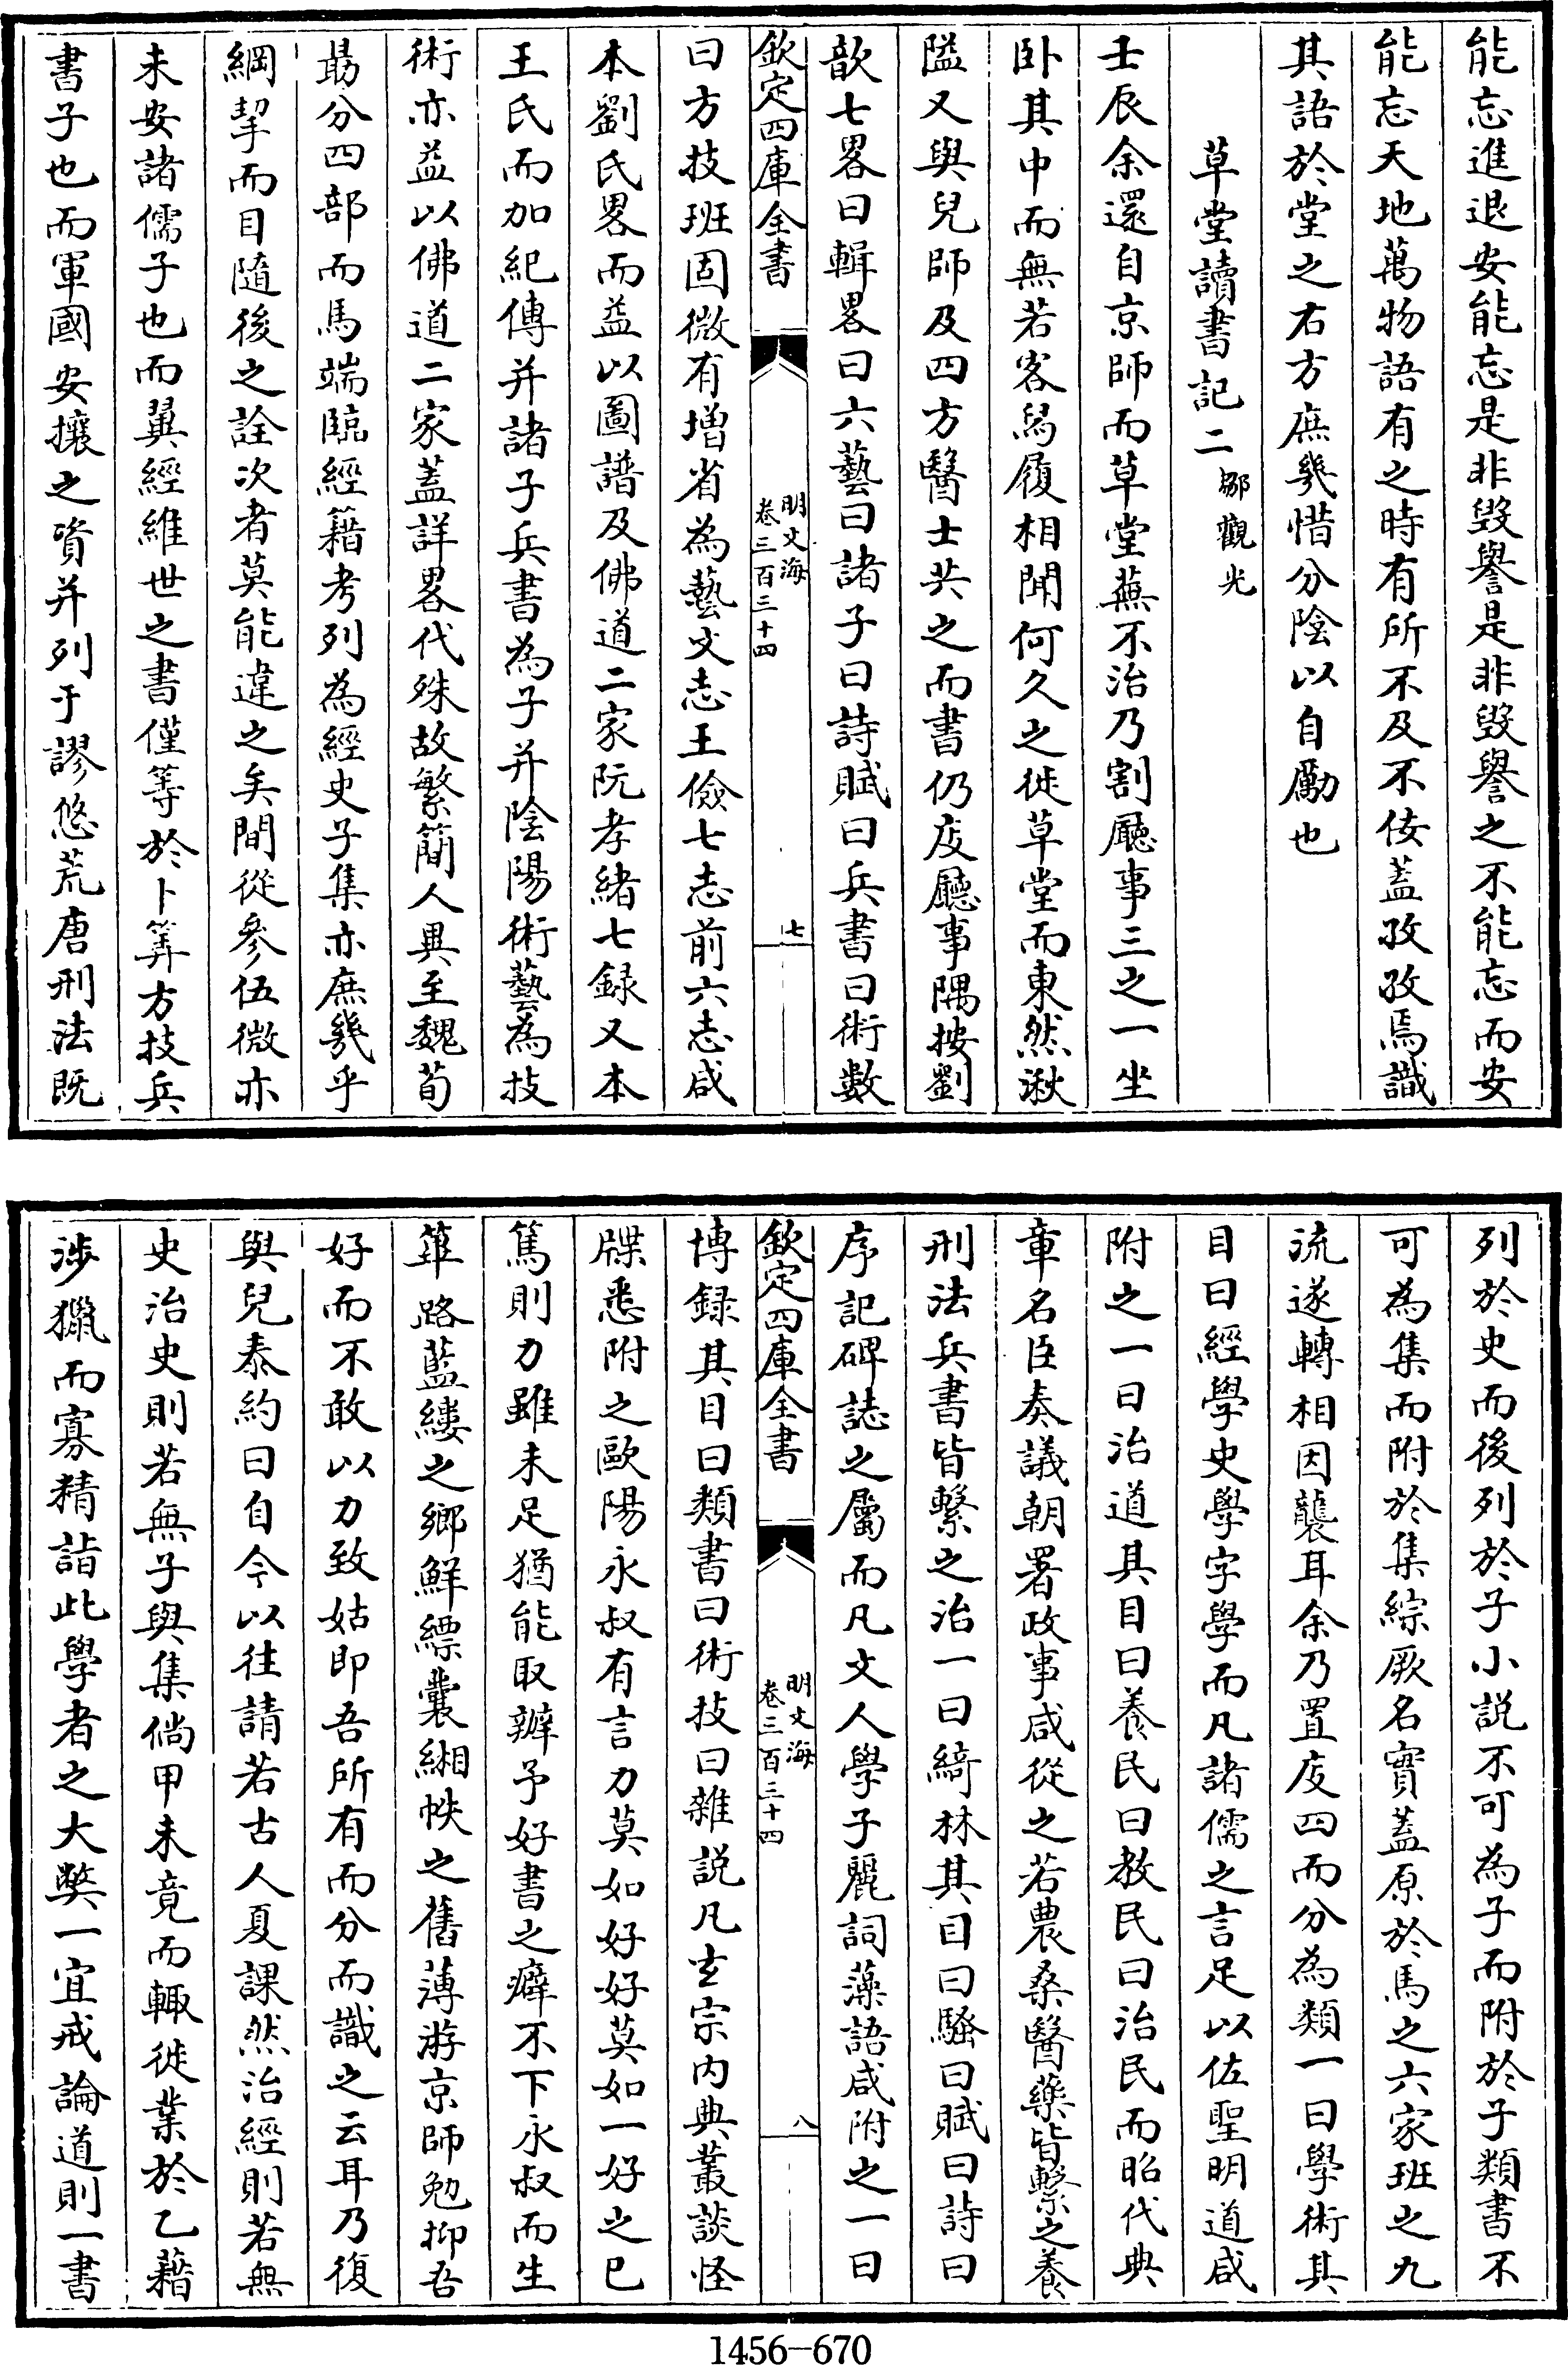 能忘進退安能忘是非毀譽是非毀譽之不能忘而安
能忘天地萬物語有之時有所不及不佞蓋孜孜焉識
其語於堂之右方庶幾惜分陰以自勵也
草堂讀書記二 鄒觀光
壬辰余還自京師而草堂蕪不治乃割廳事三之一坐
卧其中而無若客舄履相聞何久之徙草堂而東然湫
隘又與兒師及四方醫士共之而書仍庋廳事隅按劉
歆七畧曰輯畧曰六藝曰諸子曰詩賦曰兵書曰術數
欽定四庫全書
明文海
卷三百三十四
七
曰方技班固微有增省為藝文志王儉七志前六志咸
本劉氏畧而益以圖譜及佛道二家阮孝緒七録又本
王氏而加紀傳并諸子兵書為子并陰陽術藝為技
術亦益以佛道二家蓋詳畧代殊故繁簡人異至魏荀
勗分四部而馬端臨經籍考列為經史子集亦庶幾乎
綱挈而目隨後之詮次者莫能違之矣間從參伍微亦
未安諸儒子也而翼經維世之書僅等於卜筭方技兵
書子也而軍國安攘之資并列于謬悠荒唐刑法既
列於史而後列於子小説不可為子而附於子類書不
可為集而附於集綜厥名實蓋原於馬之六家班之九
流遂轉相因襲耳余乃置庋四而分為類一曰學術其
目曰經學史學字學而凡諸儒之言足以佐聖明道咸
附之一曰治道其目曰養民曰教民曰治民而昭代典
章名臣奏議朝署政事咸從之若農桑醫藥皆繫之養
刑法兵書皆繫之治一曰綺林其目曰騷曰賦曰詩曰
序記碑誌之屬而凡文人學子麗詞藻語咸附之一曰
欽定四庫全書
明文海
卷三百三十四
八
博録其目曰類書曰術技曰雜説凡玄宗内典叢談怪
牒悉附之歐陽永叔有言力莫如好好莫如一好之已
篤則力雖未足猶能取辦予好書之癖不下永叔而生
蓽路藍縷之鄉鮮縹囊緗帙之舊薄游京師勉抑吾
好而不敢以力致姑即吾所有而分而識之云耳乃復
與兒泰約曰自今以往請若古人夏課然治經則若無
史治史則若無子與集倘甲未竟而輒徙業於乙藉
涉獵而寡精詣此學者之大獘一宜戒論道則一書
1456-670